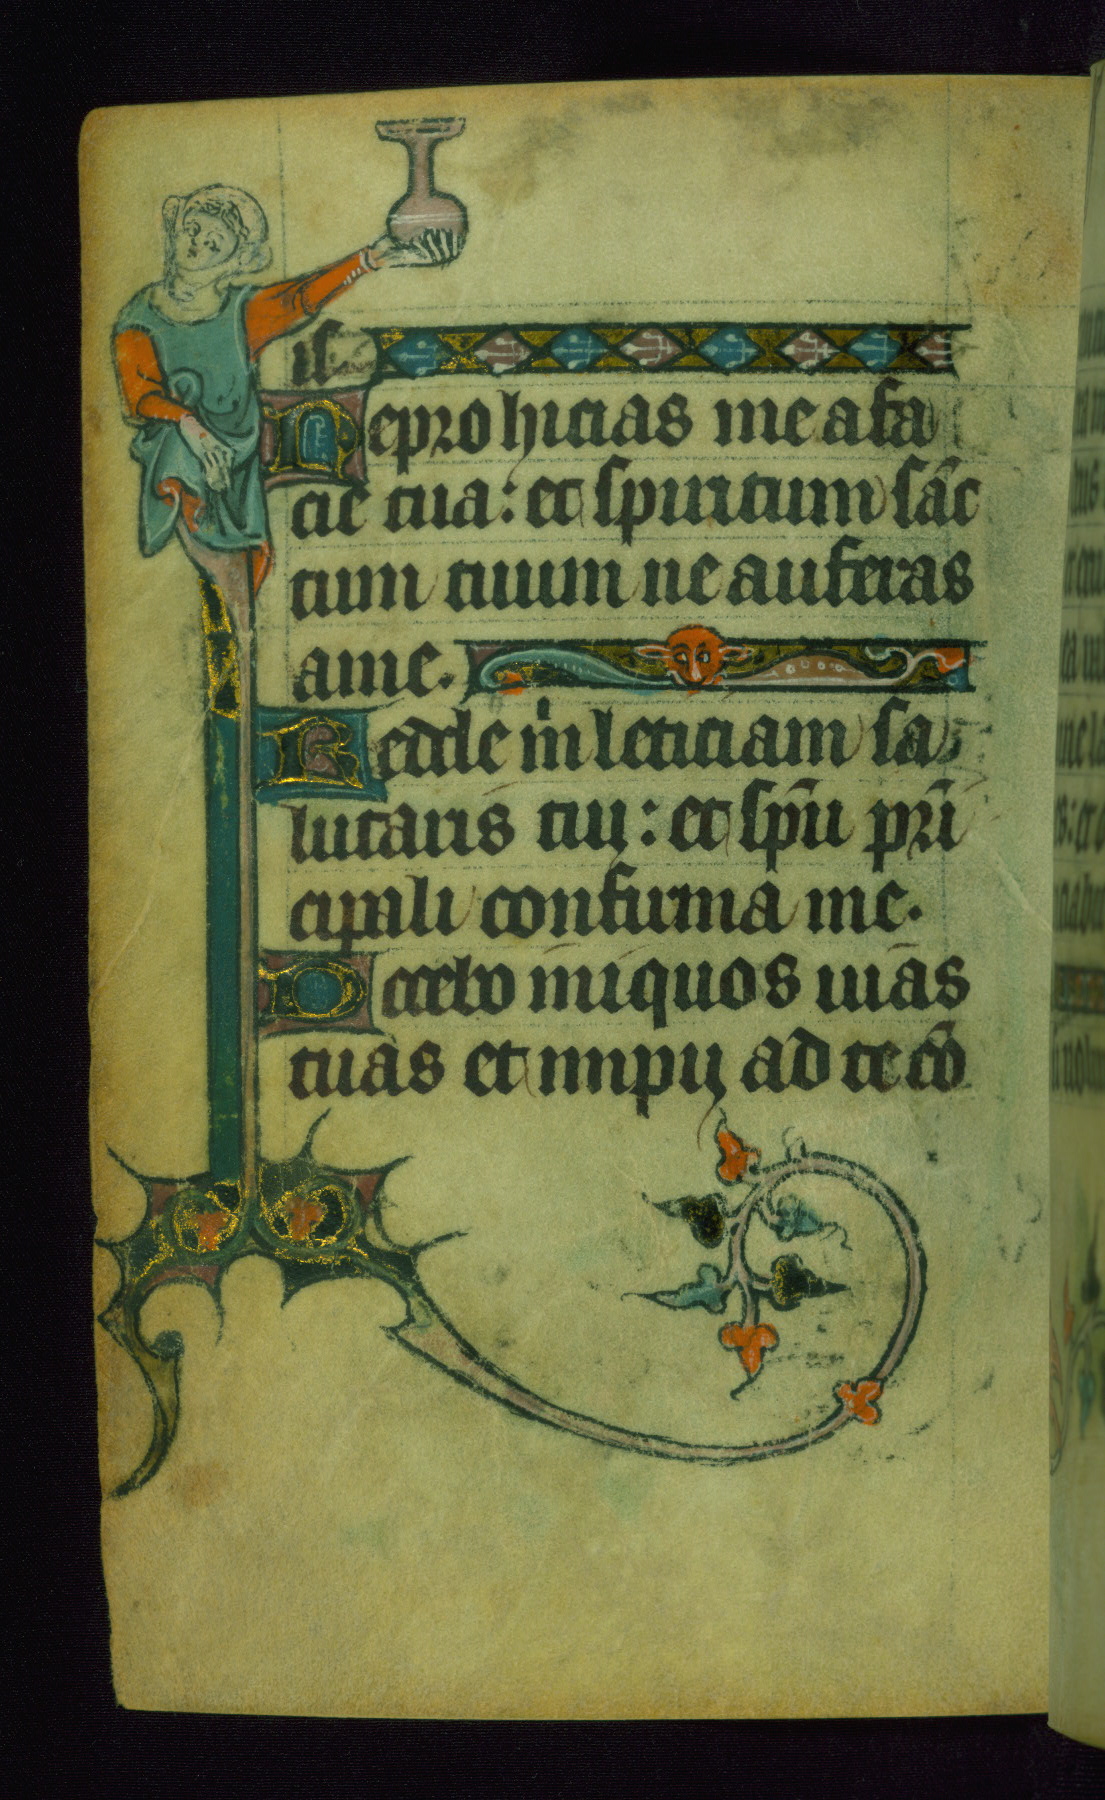 is
Neprohicias me a fa
cie tua: et spiritum sāc
tum tuum ne auferas
a me.
Redde m̄ leticiam sa
lutaris tui: et sp̄m pri̅
cipali confirma me.
Docebo iniquos uias
tuas et impii ad te cō